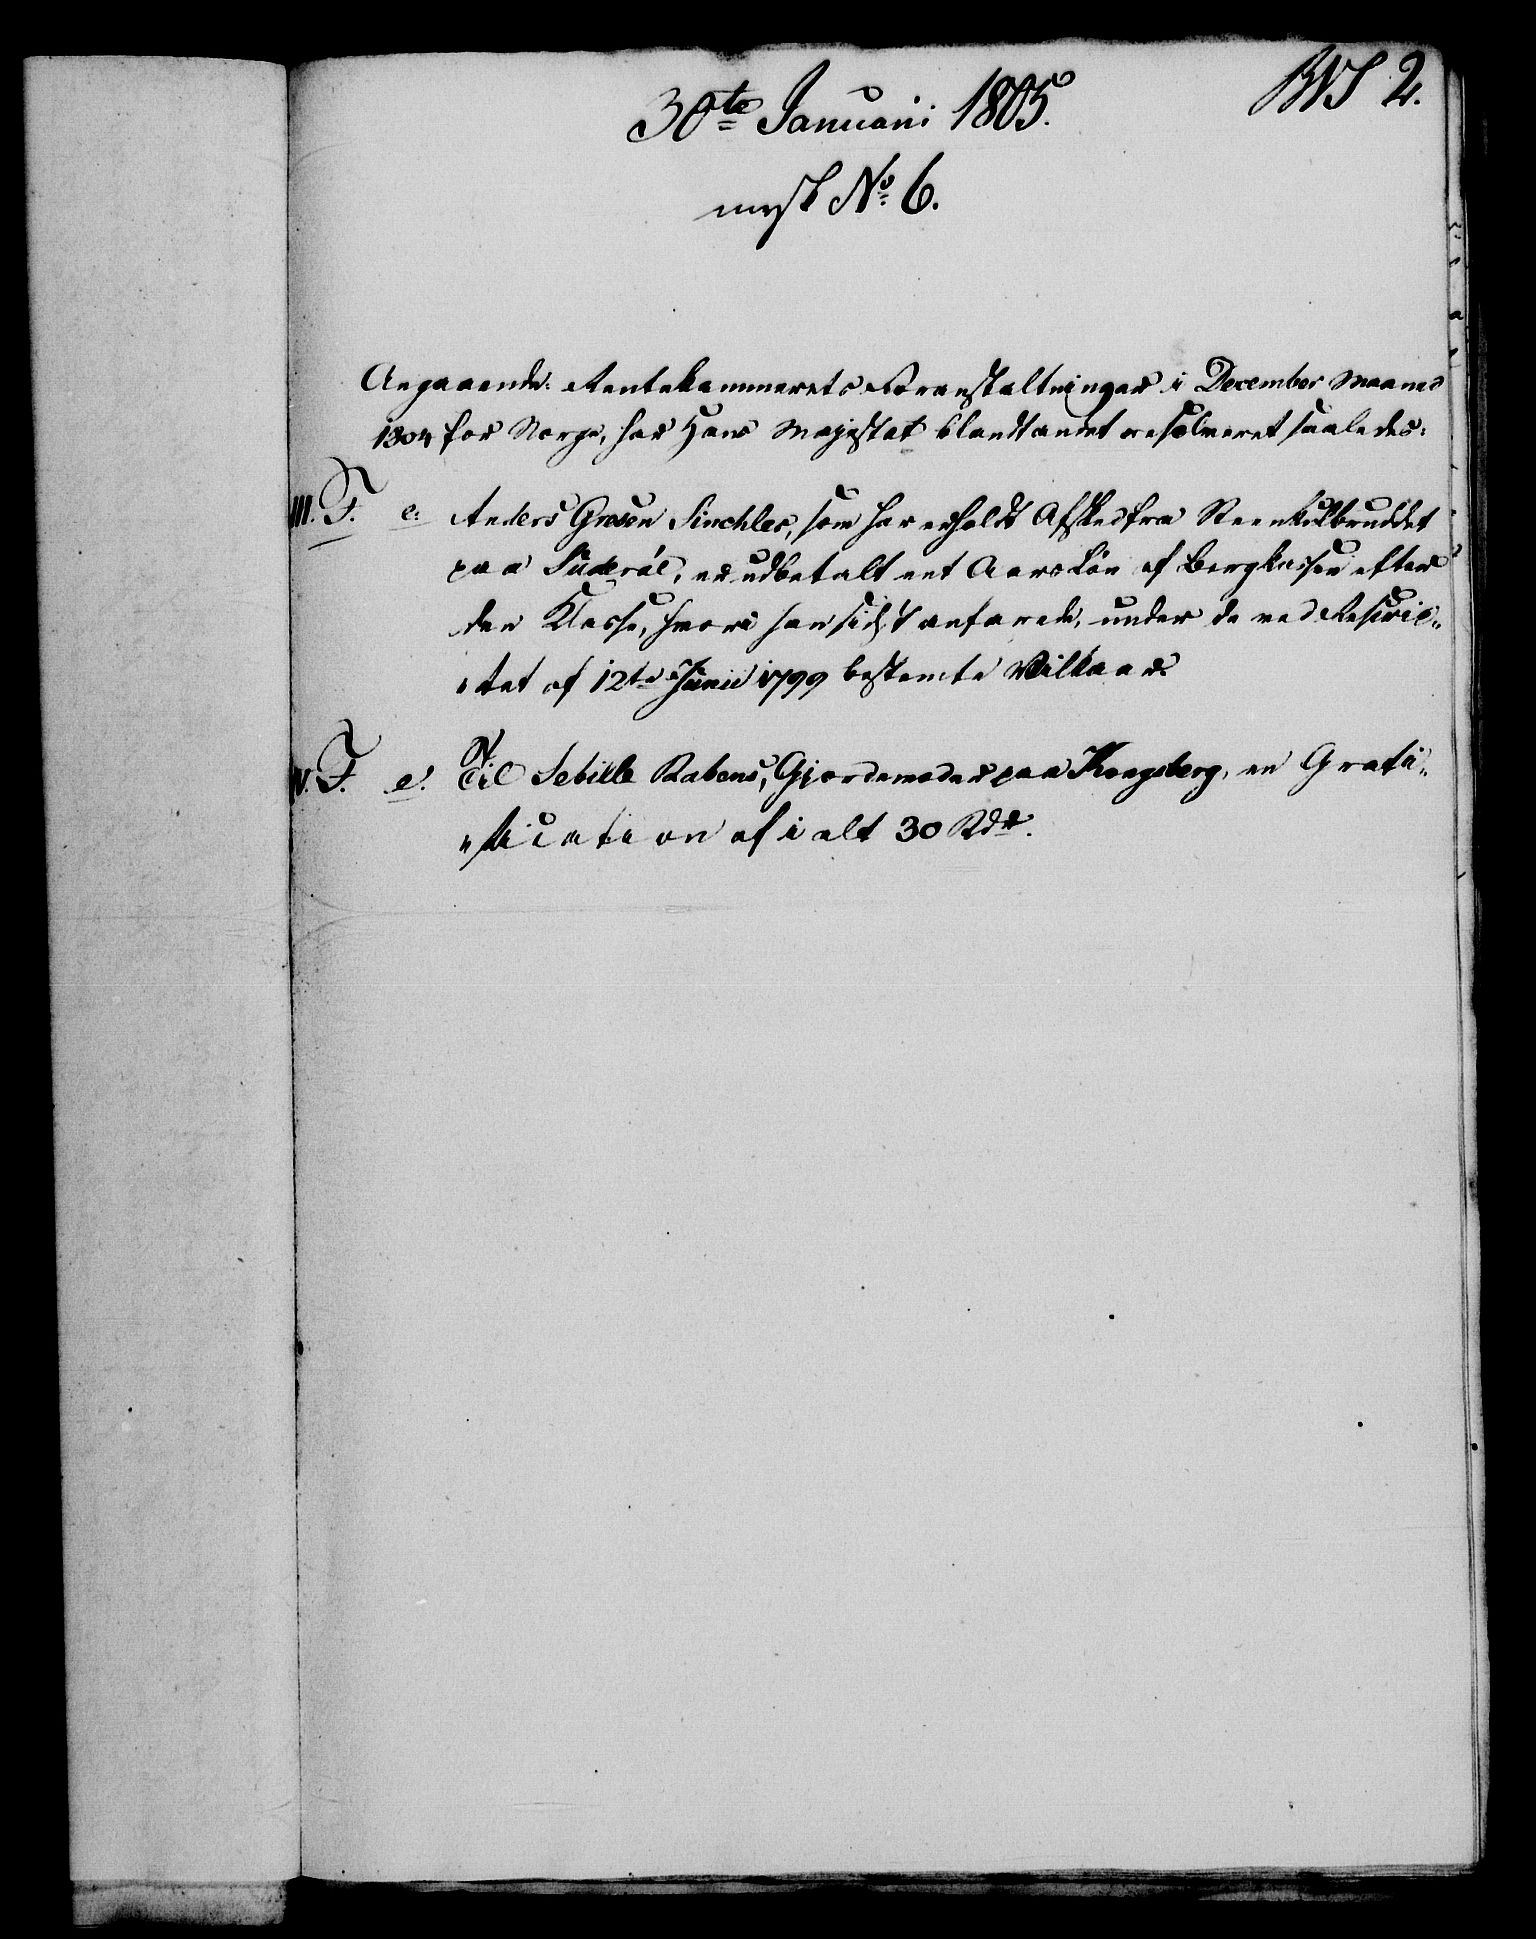 30te Januarii 1805.
2.
No 6.
Angaaende Rentekammerets Foranstaltninger i December Maaned
1804 for Norge, har Hans Majestæt blandt andet resolveret saaledes:
III. F. e. Anders Gresen Sinchler, som har erholdt Afsked fra Steenkulbruddet
paa Süderöe, er udbetalt eet Aars Løn af Bergkassen efter
den Klasse, hvori han sidst anfarede, under de ved Rescrip„
„tet af 12te Junii 1799 bestemte Vilkaar.
IV. F. e. Til Sebille Rabens, Gjordemoder paa Kongsberg, en Grati„
„fication af i alt 30 Rdr.